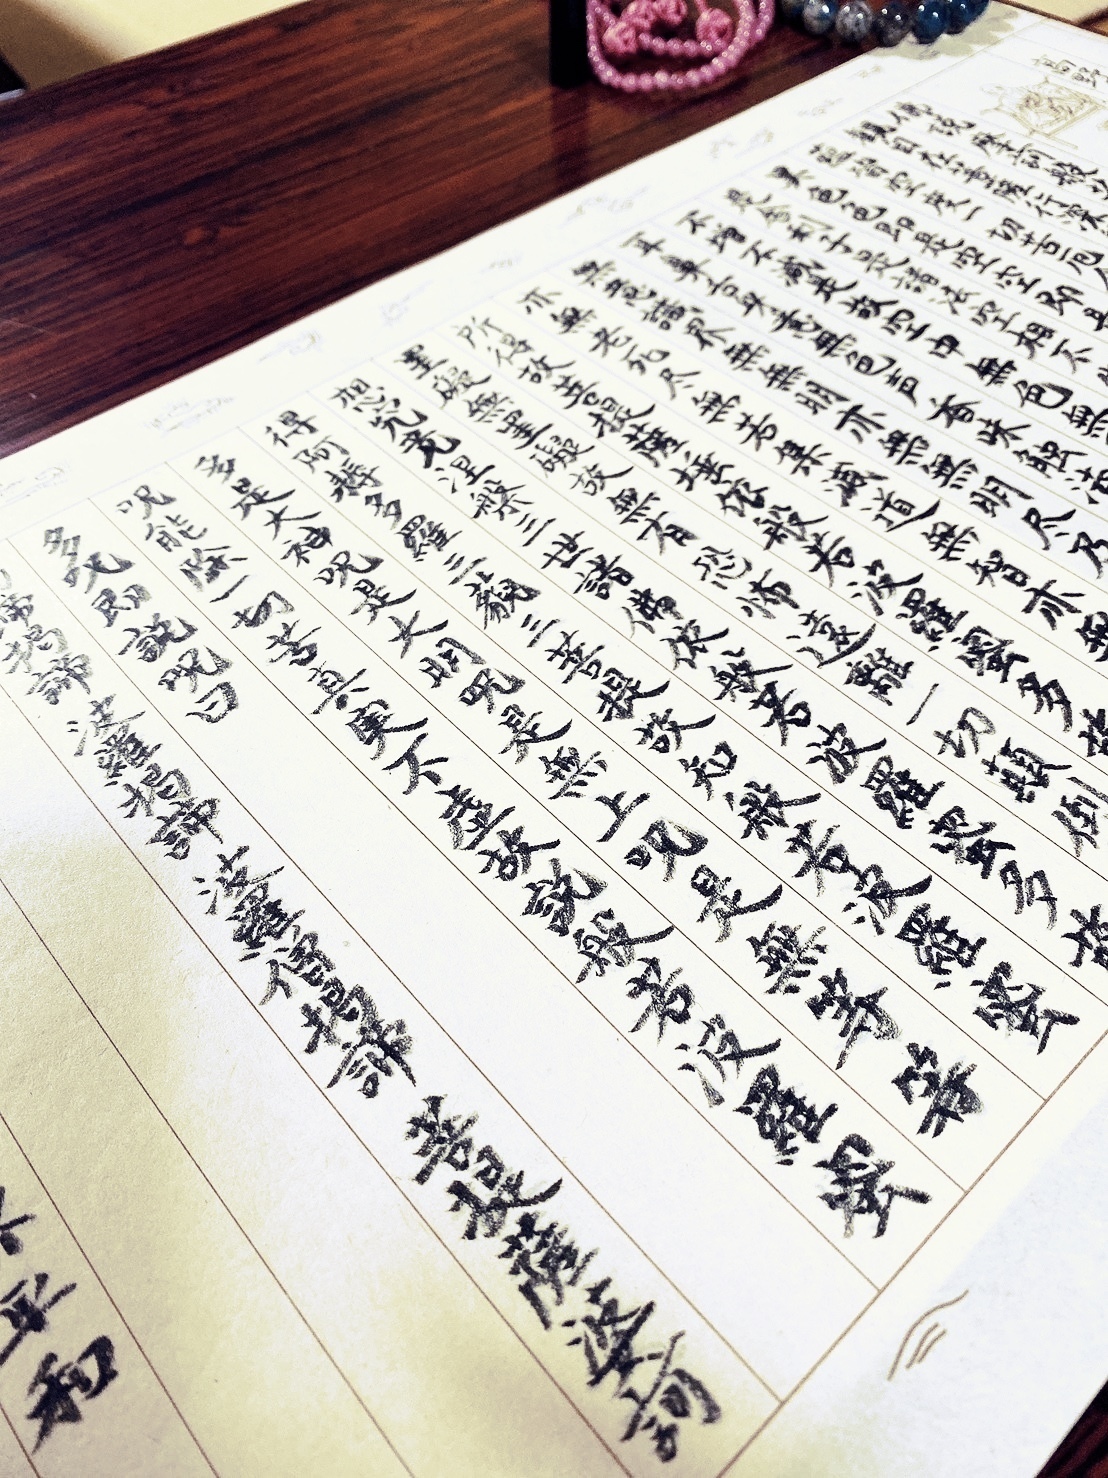 高野
佛説摩訶般若
観自在菩薩行深
蘊皆空度一切苦厄
異色色即是空空即是
是舎利子是諸法空相不
不増不減是故空中無色無
耳鼻舌身意無色声香味触法
無意識界無無明亦無無明尽乃
亦無老死尽無苦集滅道無智亦無
所得故菩提薩埵依般若波羅蜜多故
罣礙無罣礙故無有恐怖遠離一切顛倒
想究竟涅槃三世諸佛依般若波羅蜜多故
得阿耨多羅三藐三菩提故知般若波羅蜜
多是大神呪是大明呪是無上呪是無等等
呪能除一切苦真実不虚故説般若波羅蜜
多呪即説呪曰
諦羯諦 波羅羯諦 波羅僧羯諦 菩提薩婆訶
平和